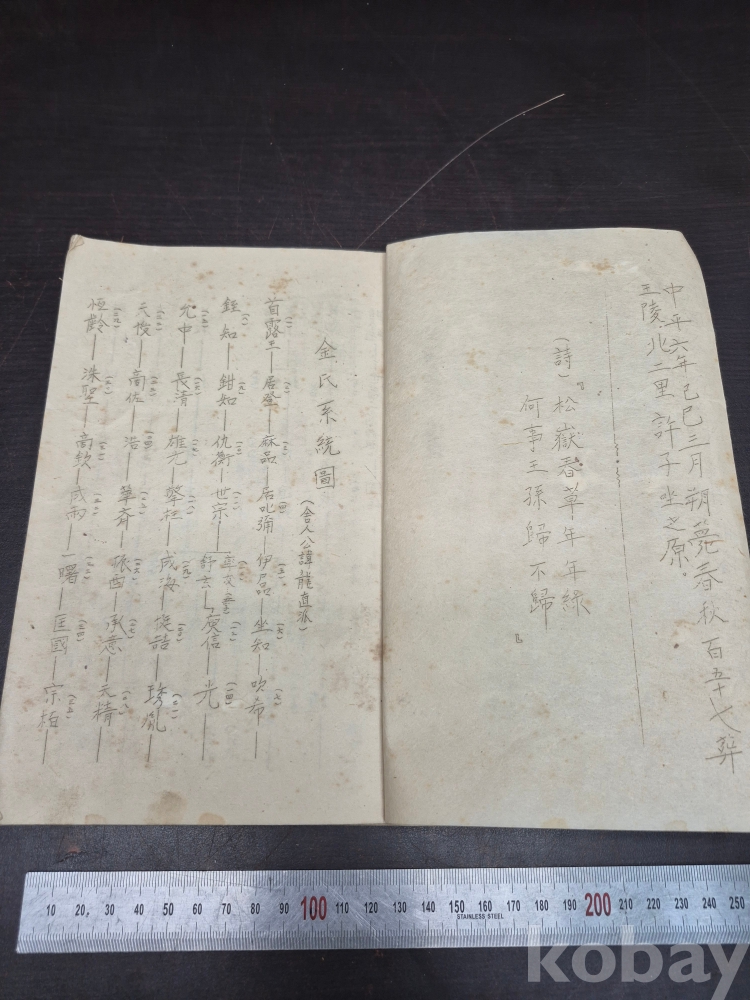 中平六年己巳三月朔薨春秋百五十七葬
王陵北二里許子坐之原。
(詩)『松嶽春草年年綠
何事王孫歸不歸』
金氏系統圖(舍人公諱龍直派)
首露王―居登―麻品―居叱彌―伊品―坐知―吹希―
銍知―鉗知―仇衡―世宗―
舒玄―庾信―光―
允中―長清―雄元―成海―
天機―高佐―浩―承意―天精―
恒齡―洙聖―高欽―成雨―一曙―匡國―宗柏―
10 20 30 40 50 60 70 80 90 100 110 120 130 140 150 160 170 180 190 200 210 220 230 240 250
STAINLESS STEEL
kobay